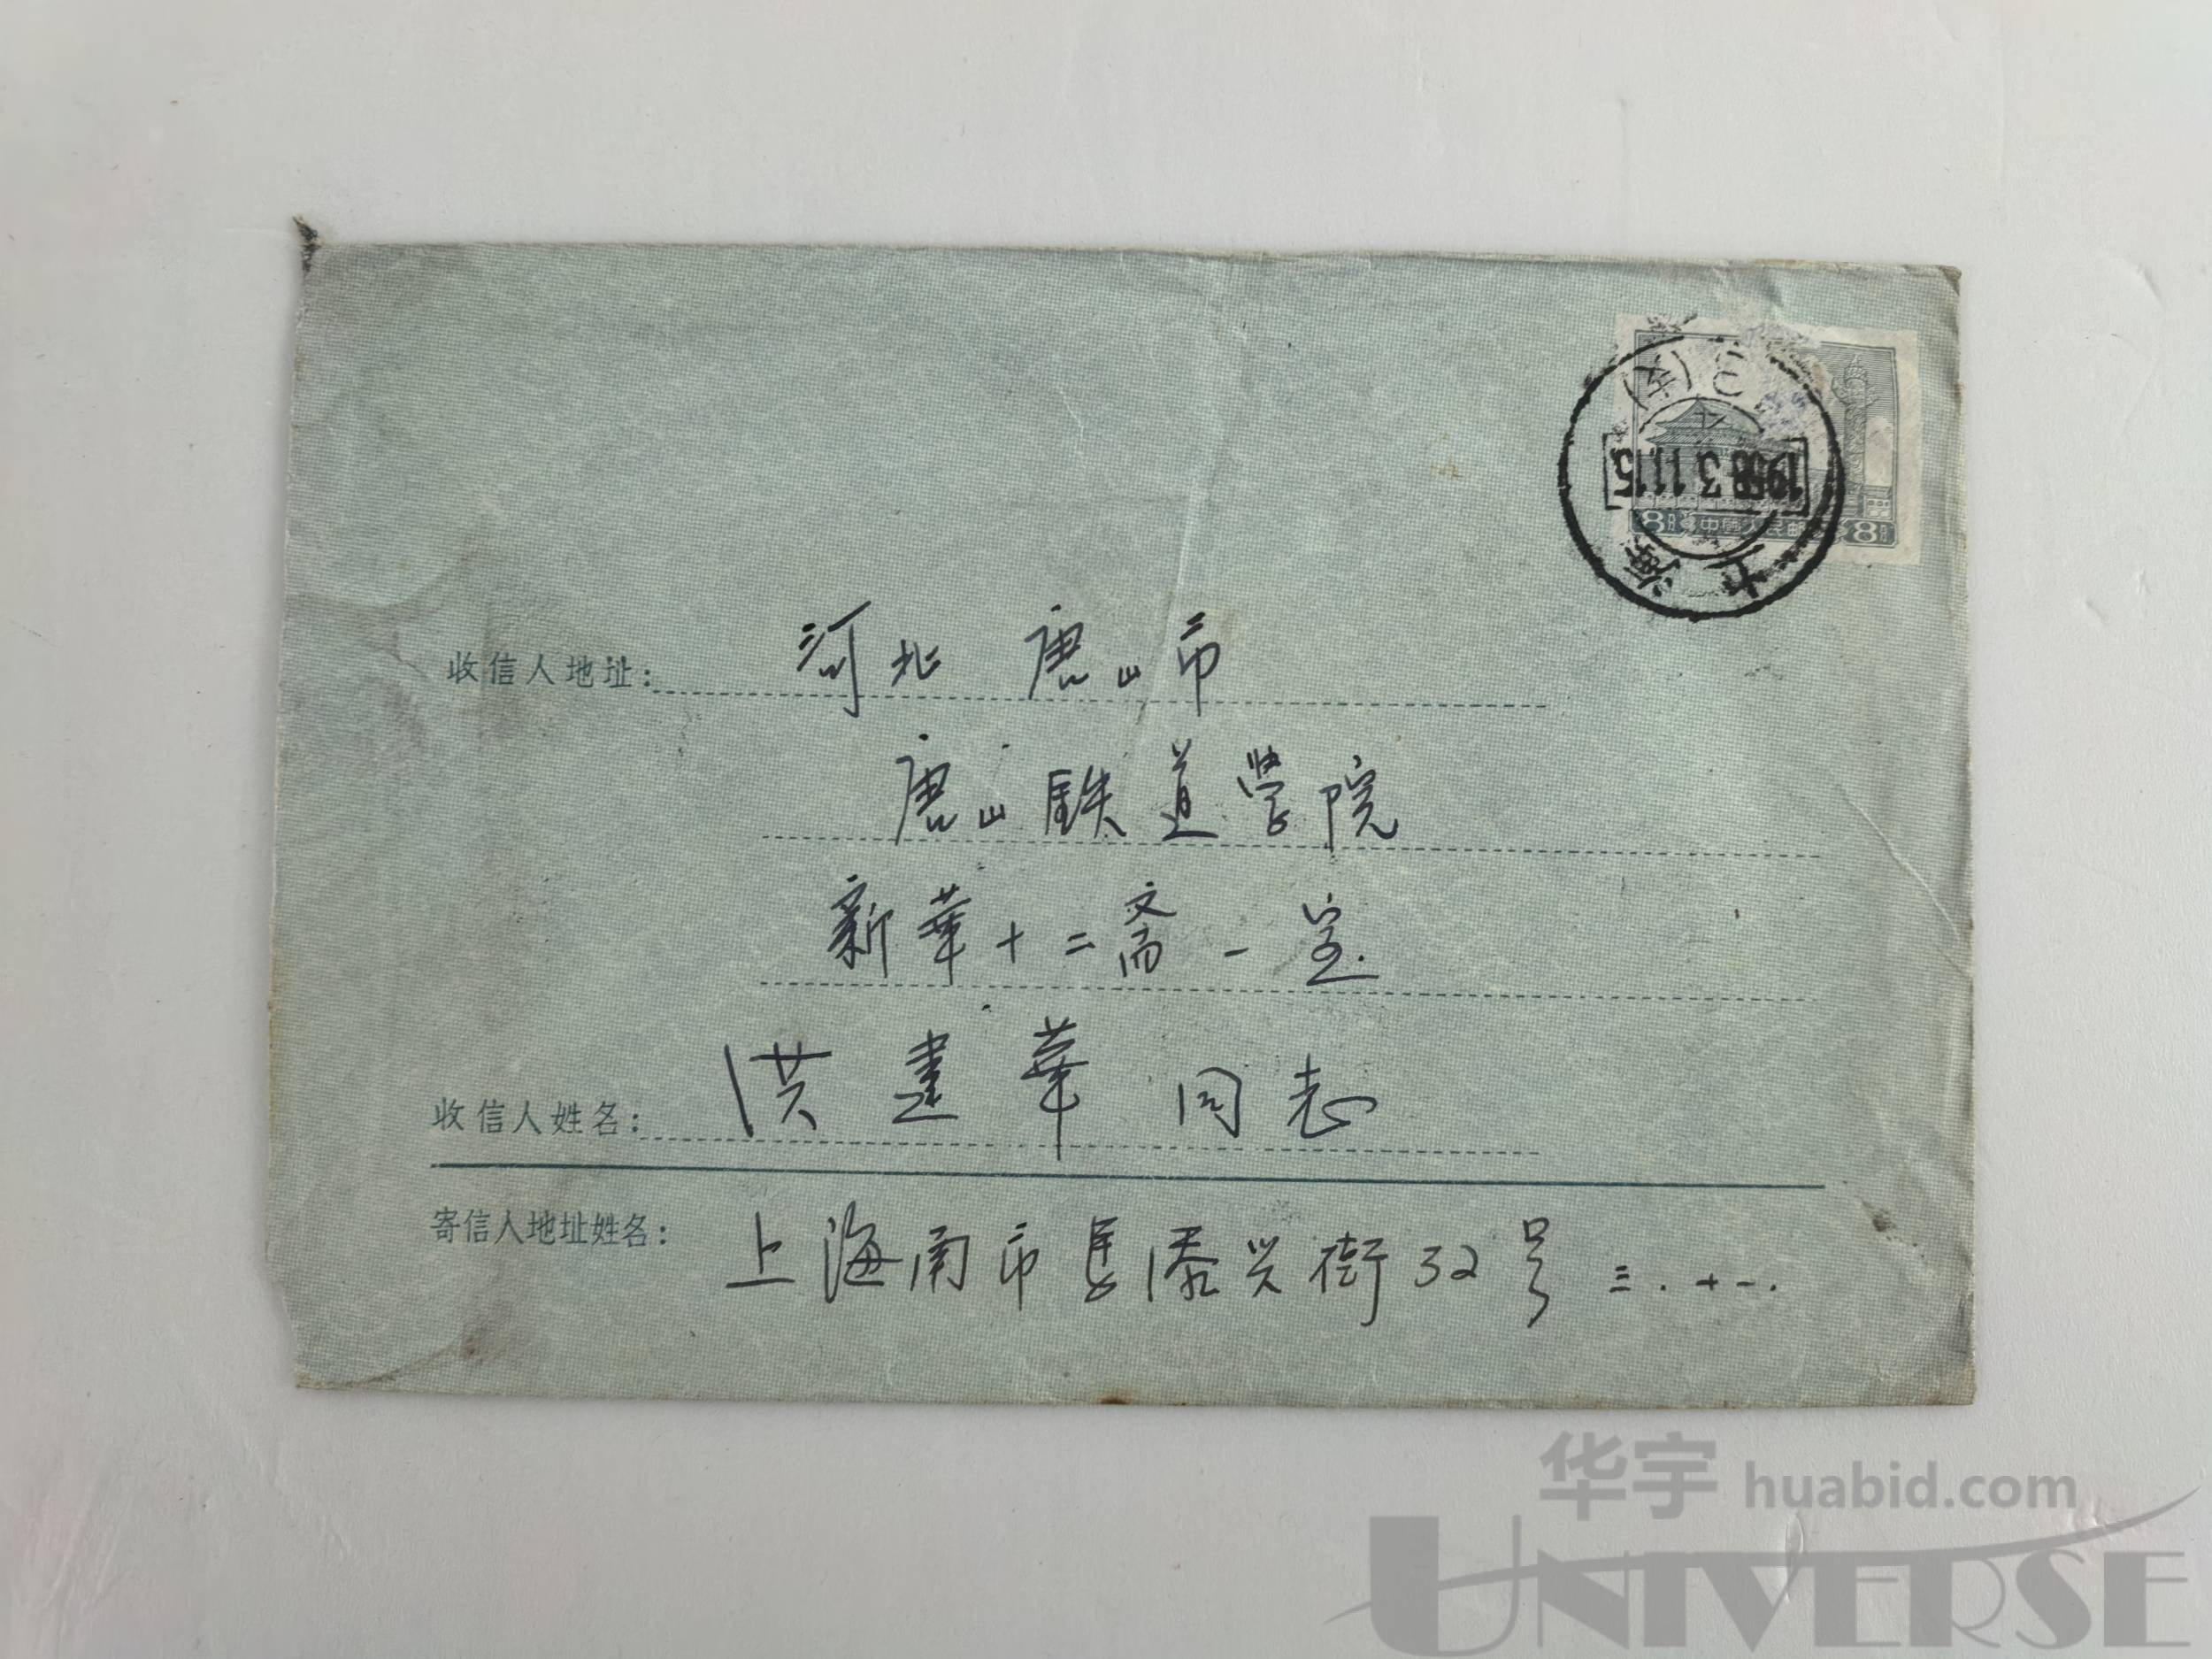 1958.3.11.15
上海
8分 中國人民邮政 8分
收信人地址: 河北 唐山市
唐山鉄道学院
新華十二斋一室
收信人姓名: 洪建華 同志
寄信人地址姓名: 上海南市長添兴街32号 三.十一.
华宇 huabid.com
UNIVERSE